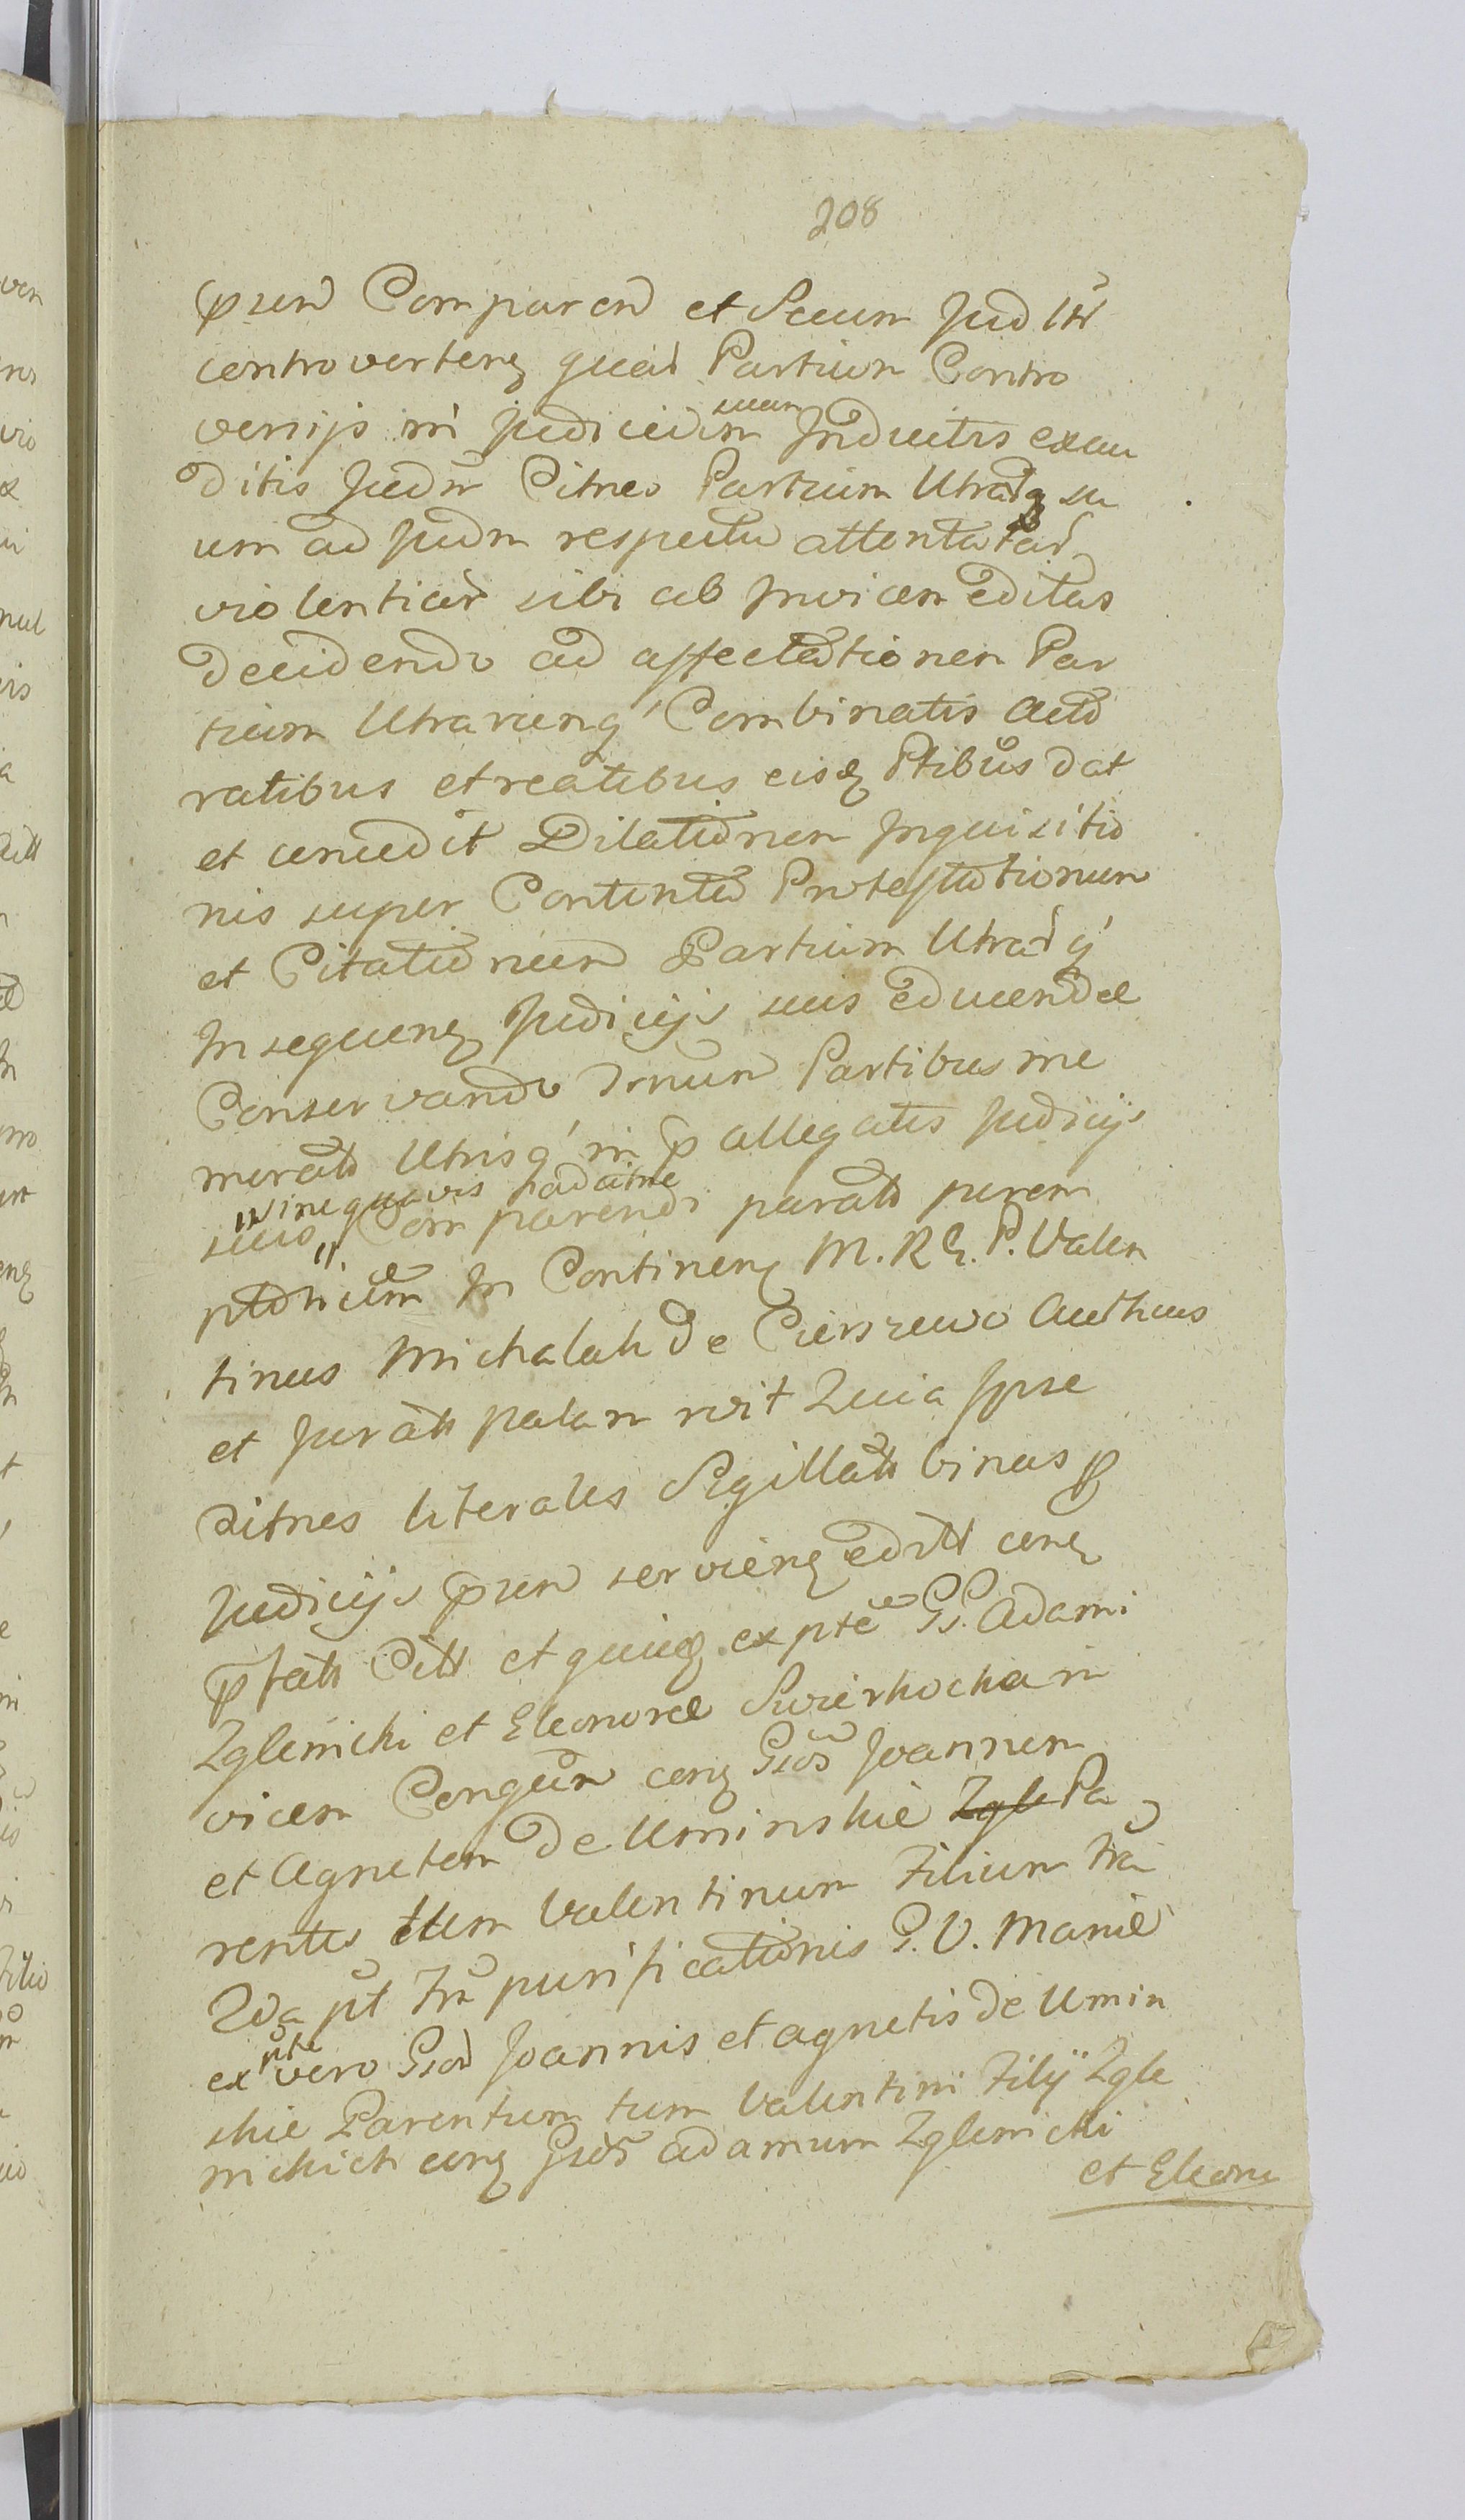 208
psen Comparen et Secum Jud ltr
controverten quar Partium Contro
versijs in Judicium suum Inductis exau
ditis Judm Citnes Partium Utrarq su
um ad Judm respectu attentatar
violentiar sibi ab Invicem editas
decidendo ad affectationem Par
tium Utrarumq Combinatis actô
ratibus et reatibus eisq Ptibus dat
et concedit Dilationem Inquisitio
nis super Contenta Protestationum
et Citationum Partium Utrarq
In sequen Judicijs suis educendae
Conservando Trnum Partibus me
morats Utrisq in p allegatis Judicijs
suis sine quavis Comparendi parats perem
ptorium In Continen M. R E. P. Valen
tinus Michalak de Cierszewo Authcus
et Jurats palam rvit Quia Ipse
Citnes literales Sigillats binas p
Judicijs psen servien editt cen
pfats Citt et quidq ex pte GG. Adami
Zglenicki et Eleonorae Swierkocka in
vicem Congum con Gsos Joannem
et Agnetem de Uminskie Zgle Pa
rentes tum Valentinum Filium
2da pt Fm purificationis B. V. Mariae
ex pte vero Gsor Joannis et Agnetis de Umin
skie Parentum tum Valentini Filij Zgle
nickich con Gsos Adamum Zglenicki
et Eleono